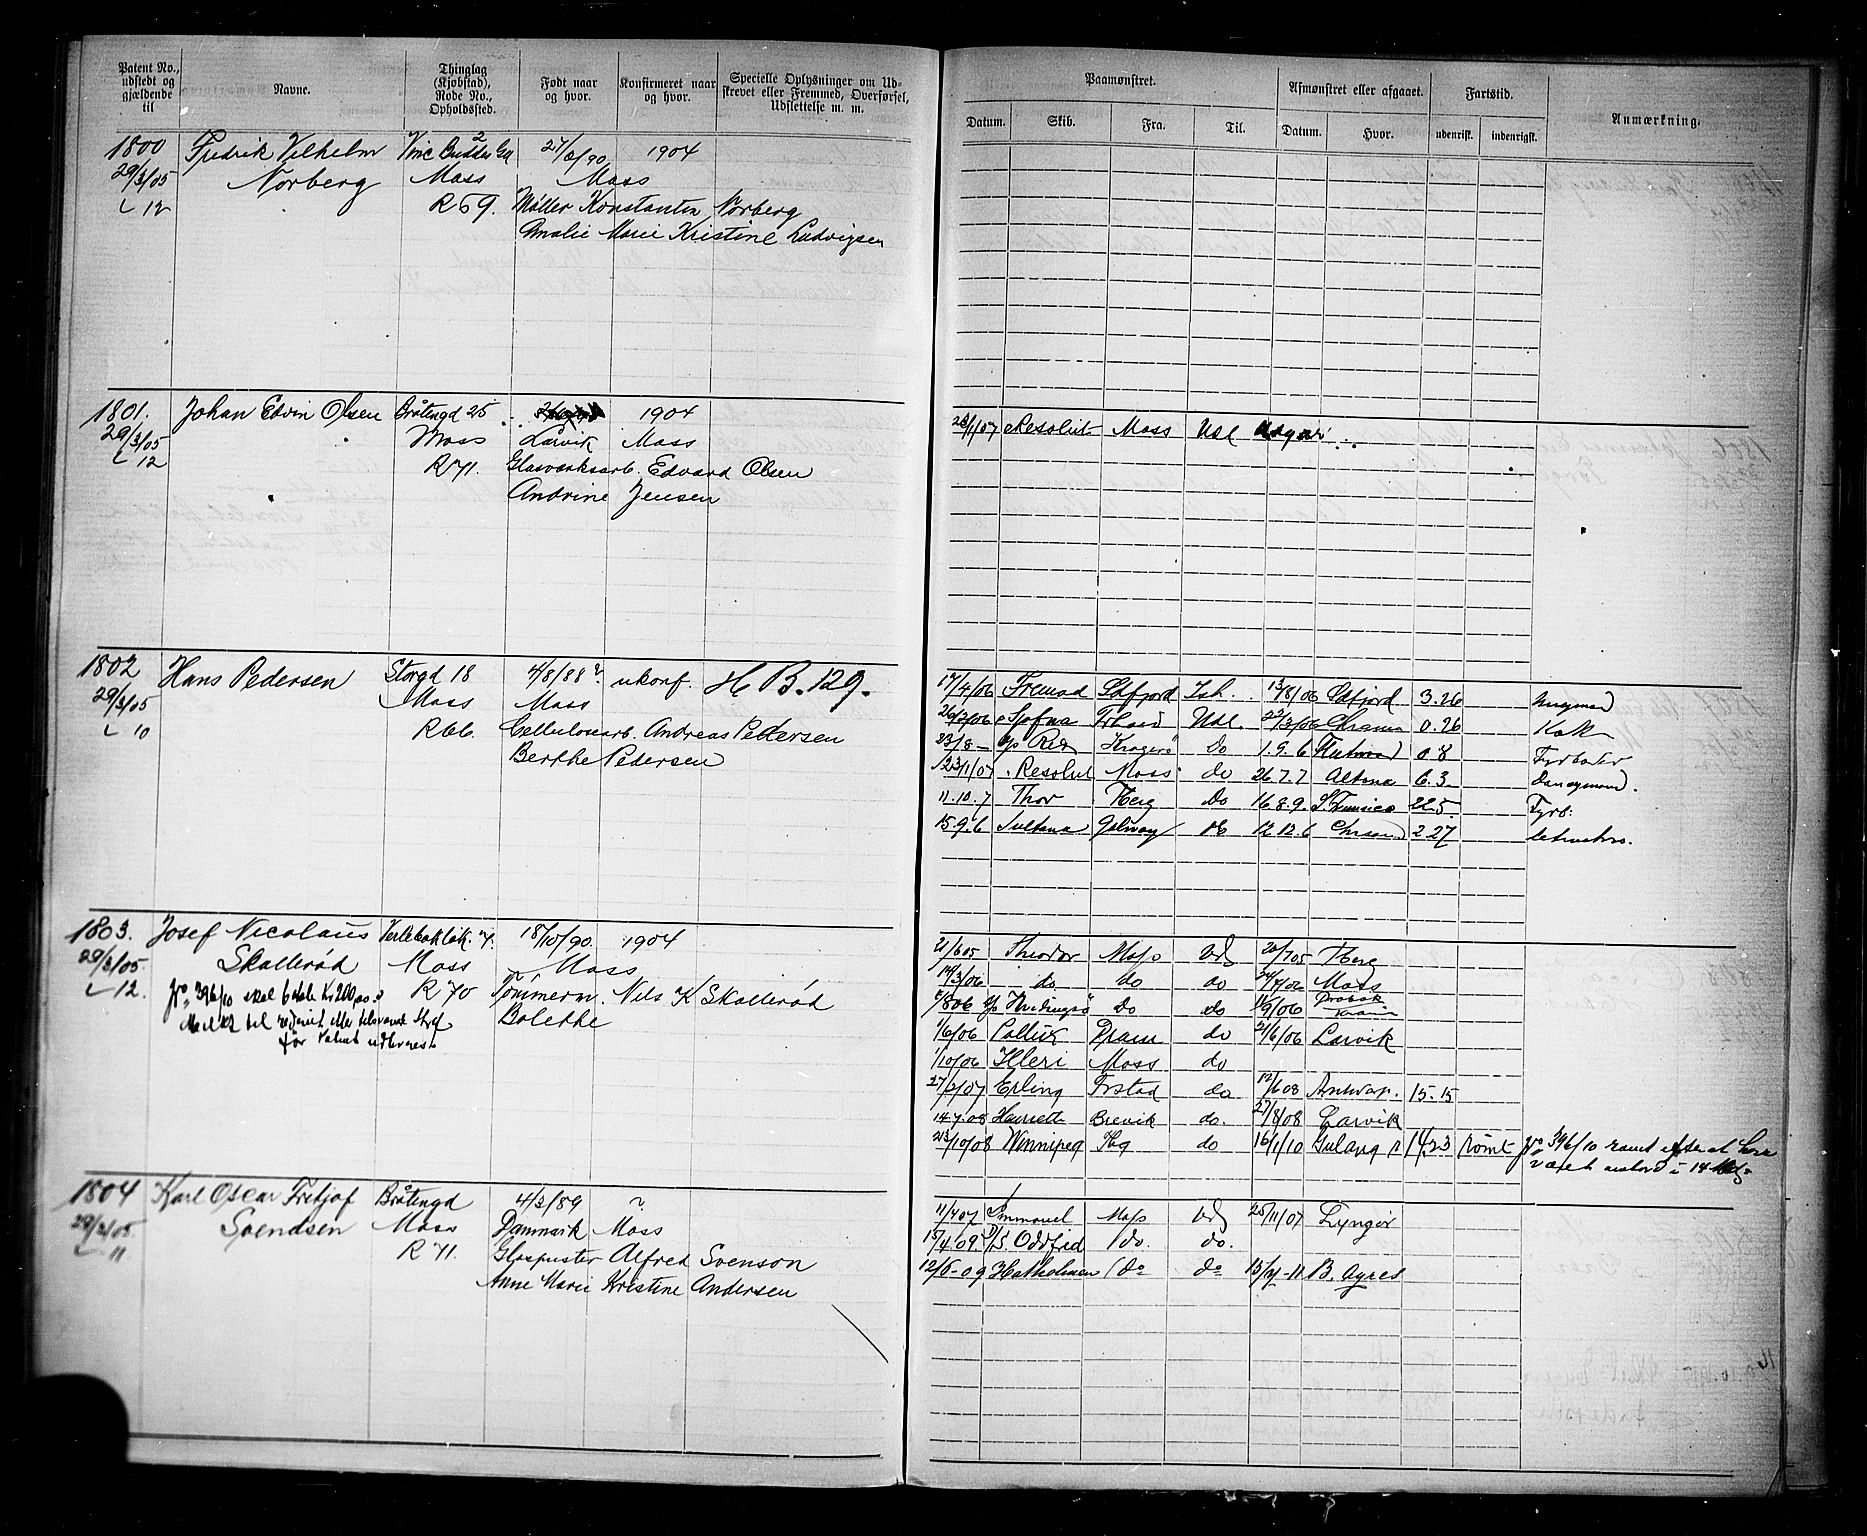 Patent No., udstedt og gjældende til
Navne.
Thinglag (Kjøbstad), Rode No., Opholdssted.
Født naar og hvor.
Konfirmeret naar og hvor.
Specielle Oplysninger om Udskrevet eller Fremmed, Overførsel, Udslettelse m. m.
Paamønstret.
Afmønstret eller afgaaet.
Fartstid.
Anmærkning.
Datum. Skib. Fra. Til. Datum. Hvor. udenrikst. indenrigst.
1800 Fredrik Vilhelm 27/6/90 1904
29/3/05 Norberg Moss Moss
12 R 69. Møller Konstantin Norberg
Amalie Marie Kristine Ludvigsen
1801. Johan Edvin Olsen Bråtengd 25 1904
29/3/05 Moss Larvik Moss
12 R 71. Glasværksarb. Edvard Olsen
Andrine Jensen
28/1/07 Resolut Moss Udl
1802 Hans Pedersen Storgd 18 4/8/88 ? ukonf. H B. 129.
29/3/05 Moss Moss
10 R 66. Cellulosearb. Andreas Pedersen
Berthe Pedersen
17/4/06 Fremad Sdfjord Ish. 13/8/06 Sdfjord 3.26 Ungmand
26/2/06 Udl. 22/3/06 0.26 Kok
23/8 Kragerø do 1.9.6 0 8 Fyrbøder
23/1/07 Resolut Moss do 26.7.7 Altona 6.3.
11.10.7 Thor Tberg do 16.8.9. 22.5. Fyrb.
15.9.6 Sultana Galway do 12.12.6 2.27 letmatros.
1803. Josef Nicolaus Verlebakløk. 7. 18/10/90 1904
29/3/05. Skallerød Moss Moss
12. R 70 Tømmerm. Nils K Skallerød
Jno 396/10 skal betale Kr 200,00
Bolethe
21/6 05 Theodor Moss Udl 20/7 05 Tberg
14/3/06 do do do 24/7/06 Moss
8/8 06 do do 11/9/06 Drøbak
1/6/06 Dram do 21/6/06 Larvik
1/10/06 Illeri Moss do
27/2/07 Erling Frstad do 12/6 08 Antwrp. 15.15
14.7.08 Henriette Brevik do. 27/8/08 Larvik
23/10/08 Winnipeg do 16/1/10 14.23 rømt Jno 396/10 rømt efter at have
været ombord i 14
1804 Karl Oscar Fritjof Bråtengd 4/3/89 ?
29/3/05 Svendsen Moss Danmark Moss
11 R 71. Glaspuster Alfred Svenson
Anne Marie Kristine Andersen
11/4 07 Immanuel Moss Udl 25/11/07 Lyngør
15/4 09. D/S. Oddfred do. do.
12/5-09 Hatholmen do do B. Ayres